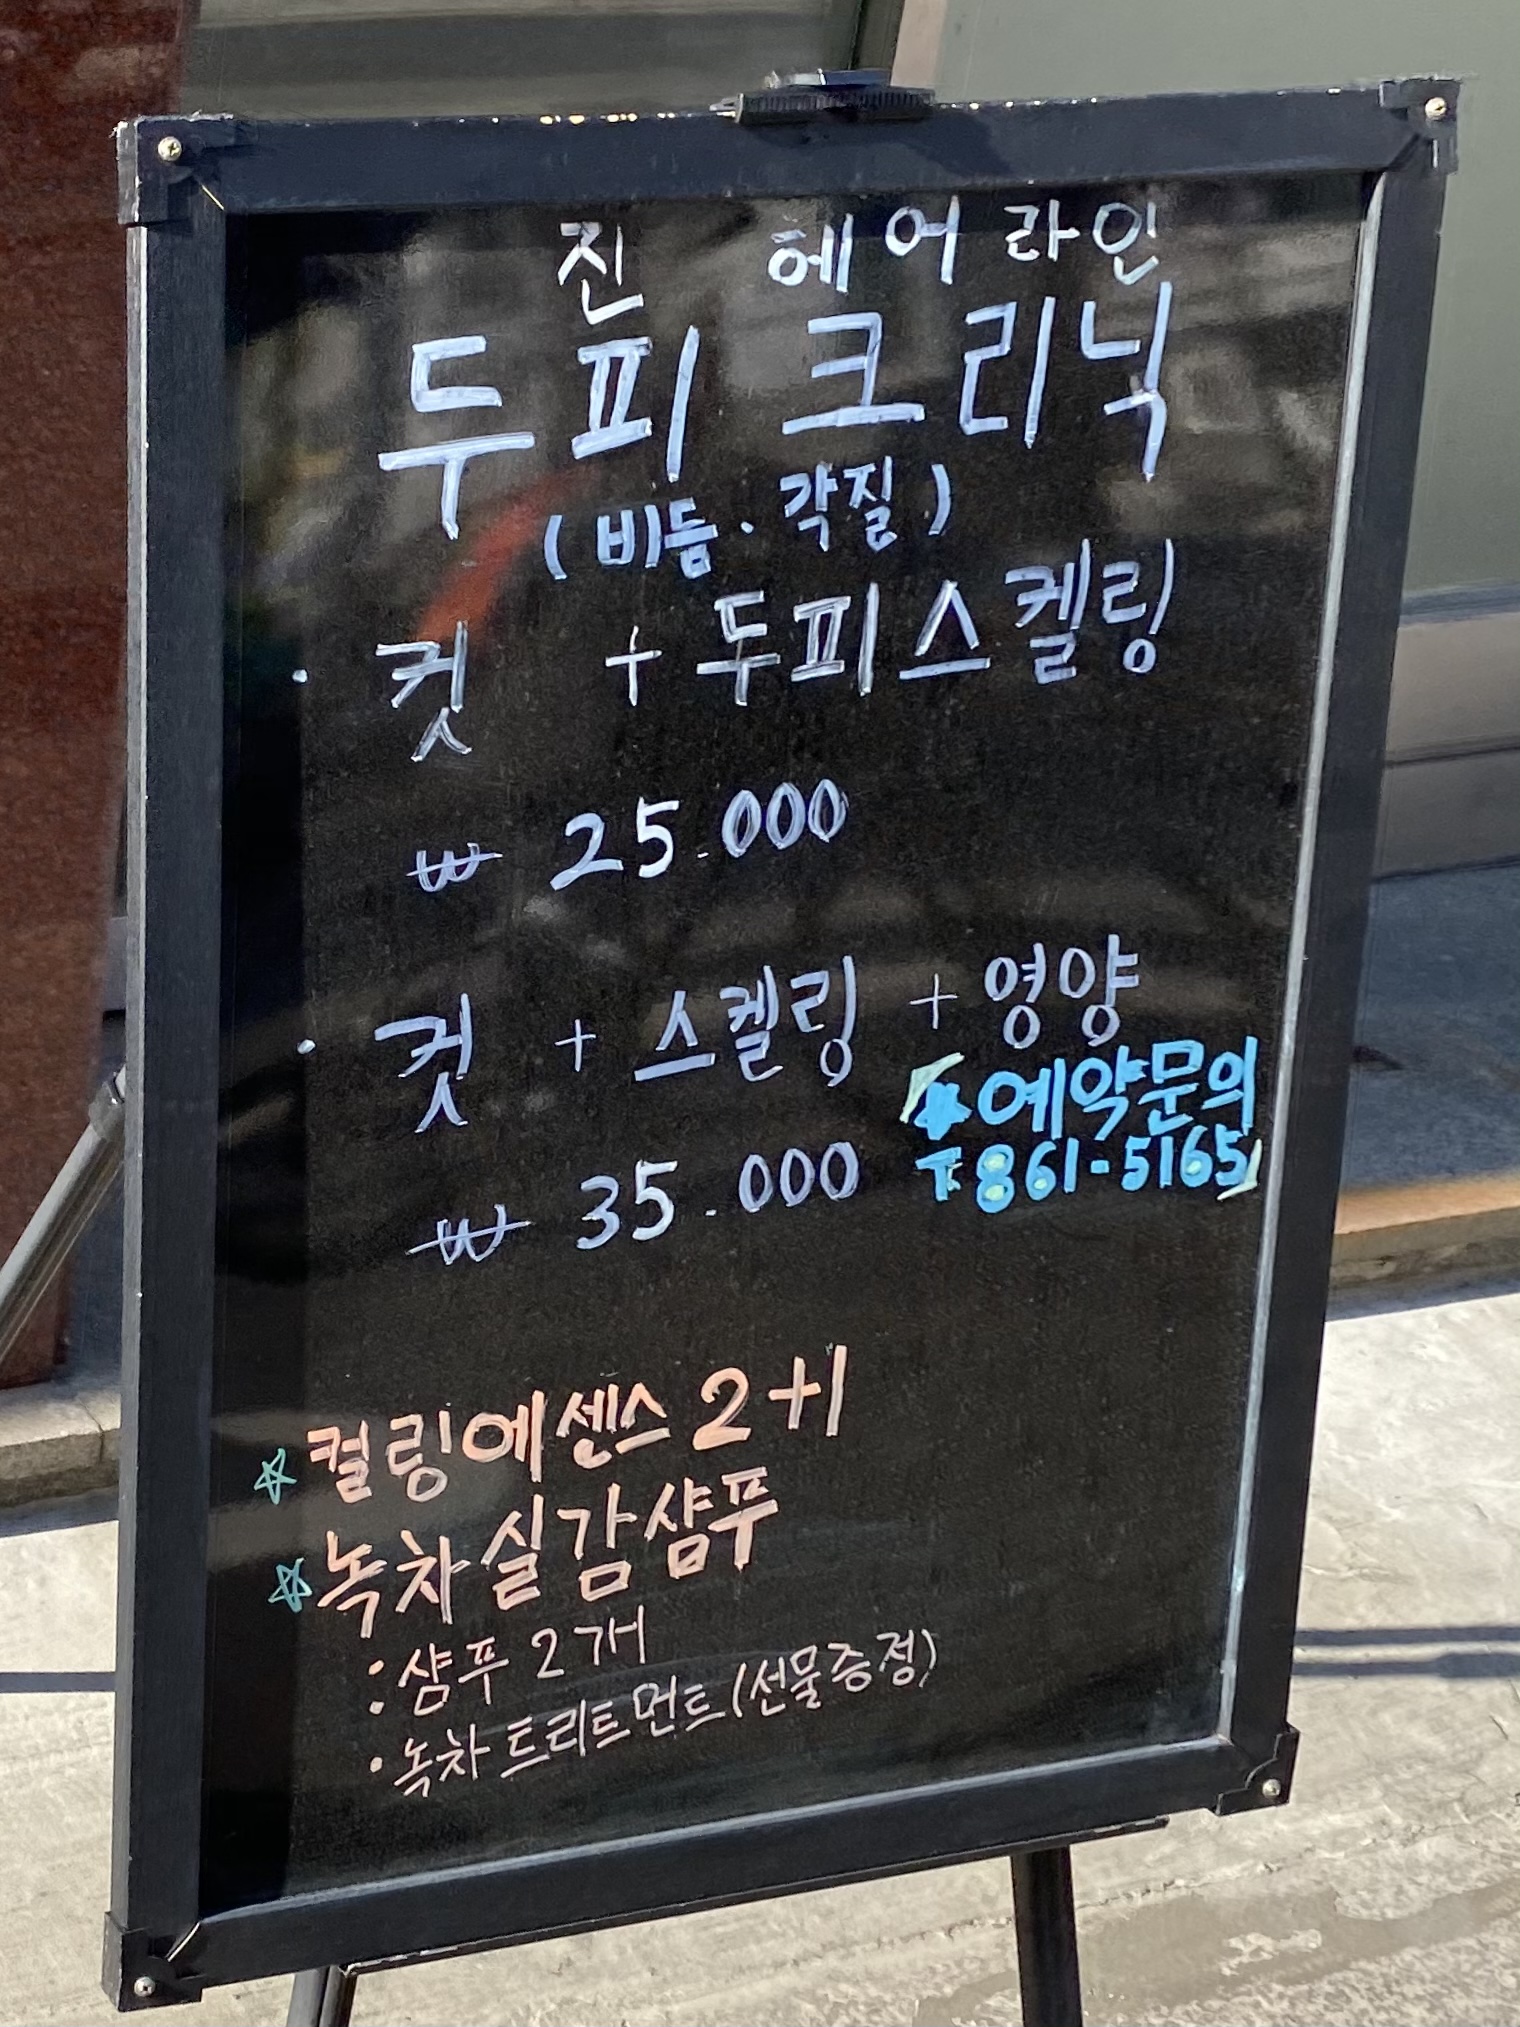 진 헤어라인
두피 크리닉
(비듬·각질)
· 컷 + 두피스켈링
₩ 25.000
· 컷 + 스켈링 + 영양
★예약문의
T.861-5165
₩ 35.000
☆컬링에센스 2+1
☆녹차실감샴푸
:샴푸 2개
·녹차트리트먼트(선물증정)